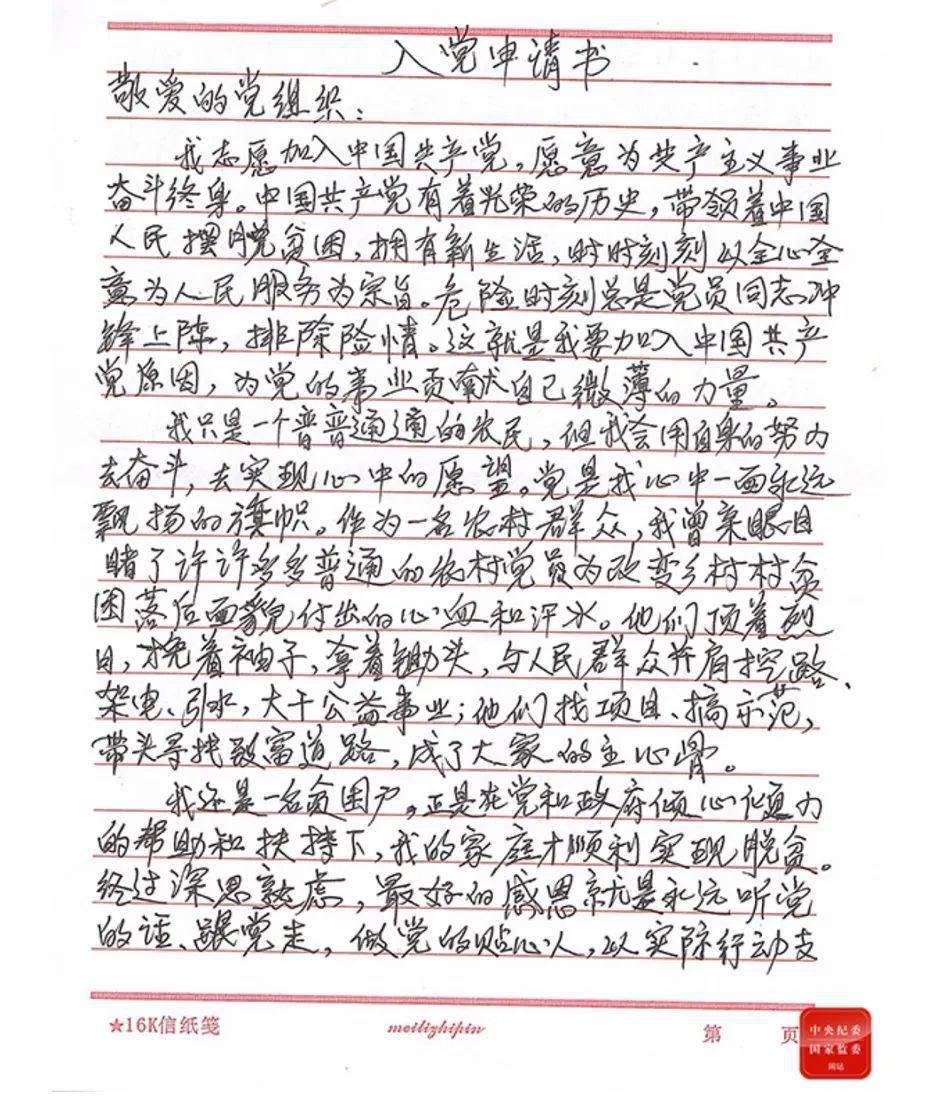 入党申请书
敬爱的党组织：
我志愿加入中国共产党，愿意为共产主义事业
奋斗终身。中国共产党有着光荣的历史，带领着中国
人民摆脱贫困，拥有新生活，时时刻刻以全心全
意为人民服务为宗旨。危险时刻总是党员同志冲
锋上阵，排除险情。这就是我要加入中国共产
党原因，为党的事业贡献自己微薄的力量。
我只是一个普普通通的农民，但我会用自身的努力
去奋斗，去实现心中的愿望。党是我心中一面永远
飘扬的旗帜。作为一名农村群众，我曾亲眼目
睹了许许多多普通的农村党员为改变乡村村贫
困落后面貌付出的心血和汗水。他们顶着烈
日，挽着袖子，拿着锄头，与人民群众并肩挖路、
架电、引水，大干公益事业；他们找项目、搞示范，
带头寻找致富道路，成了大家的主心骨。
我还是一名贫困户，正是在党和政府倾心倾力
的帮助和扶持下，我的家庭才顺利实现脱贫。
经过深思熟虑，最好的感恩就是永远听党
的话、跟党走，做党的贴心人，以实际行动支
★16K信纸笺 meilizhipin 第 页
中央纪委
国家监委
网站